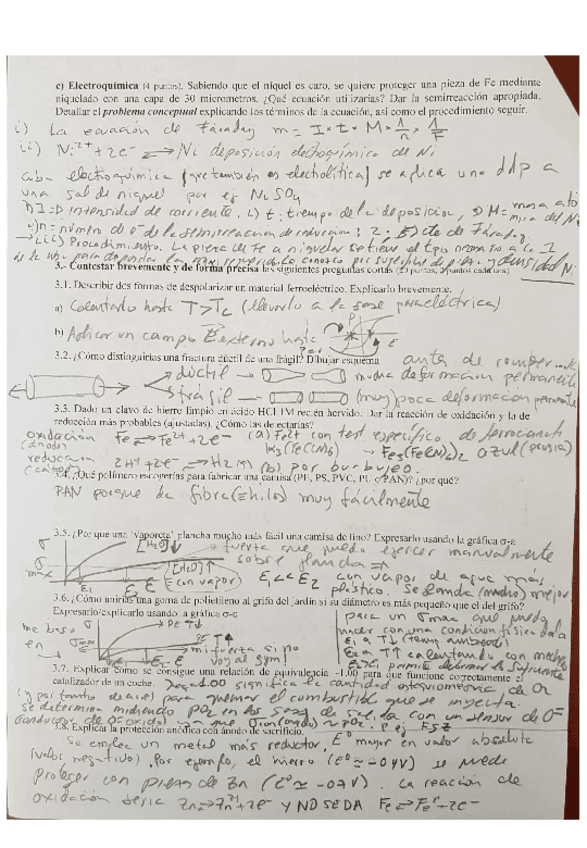 c) Electroquímica (4 puntos). Sabiendo que el níquel es caro, se quiere proteger una pieza de Fe mediante
niquelado con una capa de 30 micrometros. ¿Qué ecuación utilizarías? Dar la semirreacción apropiada.
Detallar el problema conceptual explicando los términos de la ecuación, así como el procedimiento seguir.
i) La ecuación de Faraday m = I × t × M × 1/n × 1/F
ii) Ni²⁺ + 2e⁻ ⇄ Ni deposición electroquímica de Ni
cuba electroquímica (que también es electrolítica) se aplica una ddp a
una sal de niquel por ej NiSO4
1) I=D intensidad de corriente, 2) t: tiempo de la deposición, 3) M= masa ató
mica del Ni
4) n = número de e⁻ de la semirreacción de reducción: 2. 5) cte de Faraday
iii) Procedimiento. La pieza de Fe a niquelar se tiene el tpo necesario a la I
3.- Contestar brevemente y de forma precisa las siguientes preguntas cortas (2 puntos cada una)
3.1. Describir dos formas de despolarizar un material ferroeléctrico. Explicarlo brevemente.
a) Calentarlo hasta T > Tc (llevarlo a la fase paraeléctrica)
b) Aplicar un campo E externo hasta P = 0
3.2. ¿Cómo distinguirías una fractura dúctil de una frágil? Dibujar esquema
antes de romper
dúctil mucha deformación permanente
frágil (muy) poca deformación permanente
3.3. Dado un clavo de hierro limpio en ácido HCl 1M recién hervido. Dar la reacción de oxidación y la de
reducción más probables (ajustadas). ¿Cómo las detectarías?
oxidación (ánodo) Fe ⇄ Fe²⁺ + 2e⁻ (a) Fe²⁺ con test específico de ferrocianuro
K3(Fe(CN)6) → Fe3(Fe(CN)6)2 azul (prusia)
reducción 2H⁺ + 2e⁻ → H2(g) (b) por burbujeo.
3.4. ¿Qué polímero escogerías para fabricar una camisa (PE, PS, PVC, PU o PAN)? ¿por qué?
PAN porque da fibra (= hilos) muy fácilmente
3.5. ¿Por que una 'vaporeta' plancha mucho más fácil una camisa de lino? Expresarlo usando la gráfica σ-ε
σ [H2O]↓ fuerza que puedo ejercer manualmente
σ max [H2O]↑ sobre plancha ⇒
(con vapor) ε1 << ε2 con vapor de agua más
plástico. Se plancha (mucho) mejor
3.6. ¿Cómo unirías una goma de polietileno al grifo del jardín si su diámetro es más pequeño que el del grifo?
Expresarlo/explicarlo usando la gráfica σ-ε
PE T↓ para un σmax que puedo
σmax PE T↑ hacer con una condición física dada
mi fuerza si no ε1 a T↓ (temp ambiente)
voy al gym! ε2 a T↑ calentando con mechero
ε2 > ε1 permite deformar lo suficiente
3.7. Explicar Cómo se consigue una relación de equivalencia ~1.00 para que funcione correctamente el
catalizador de un coche. λ = 1.00 significa la cantidad estequiométrica de O2
(y por tanto de aire) para quemar el combustible que se inyecta.
se determina midiendo pO2 en los gases de salida con un sensor de O²⁻
3.8. Explicar la protección anódica con ánodo de sacrificio.
Se emplea un metal más reductor, E° mayor en valor absoluto
(valor negativo). Por ejemplo, el hierro (E° ≈ -0.4V) se puede
proteger con piezas de Zn (E° ≈ -0.7V). La reacción de
oxidación sería Zn ⇄ Zn²⁺ + 2e⁻ y NO SE DA Fe ⇄ Fe²⁺ + 2e⁻